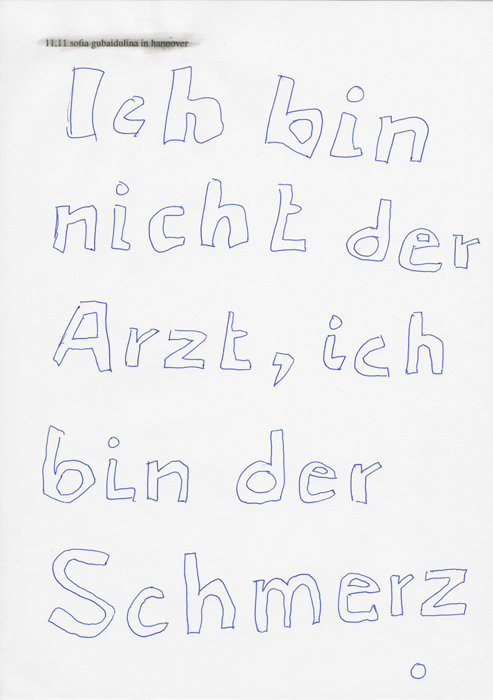 11.11 sofia gubaidulina in hannover
Ich bin
nicht der
Arzt, ich
bin der
Schmerz
.